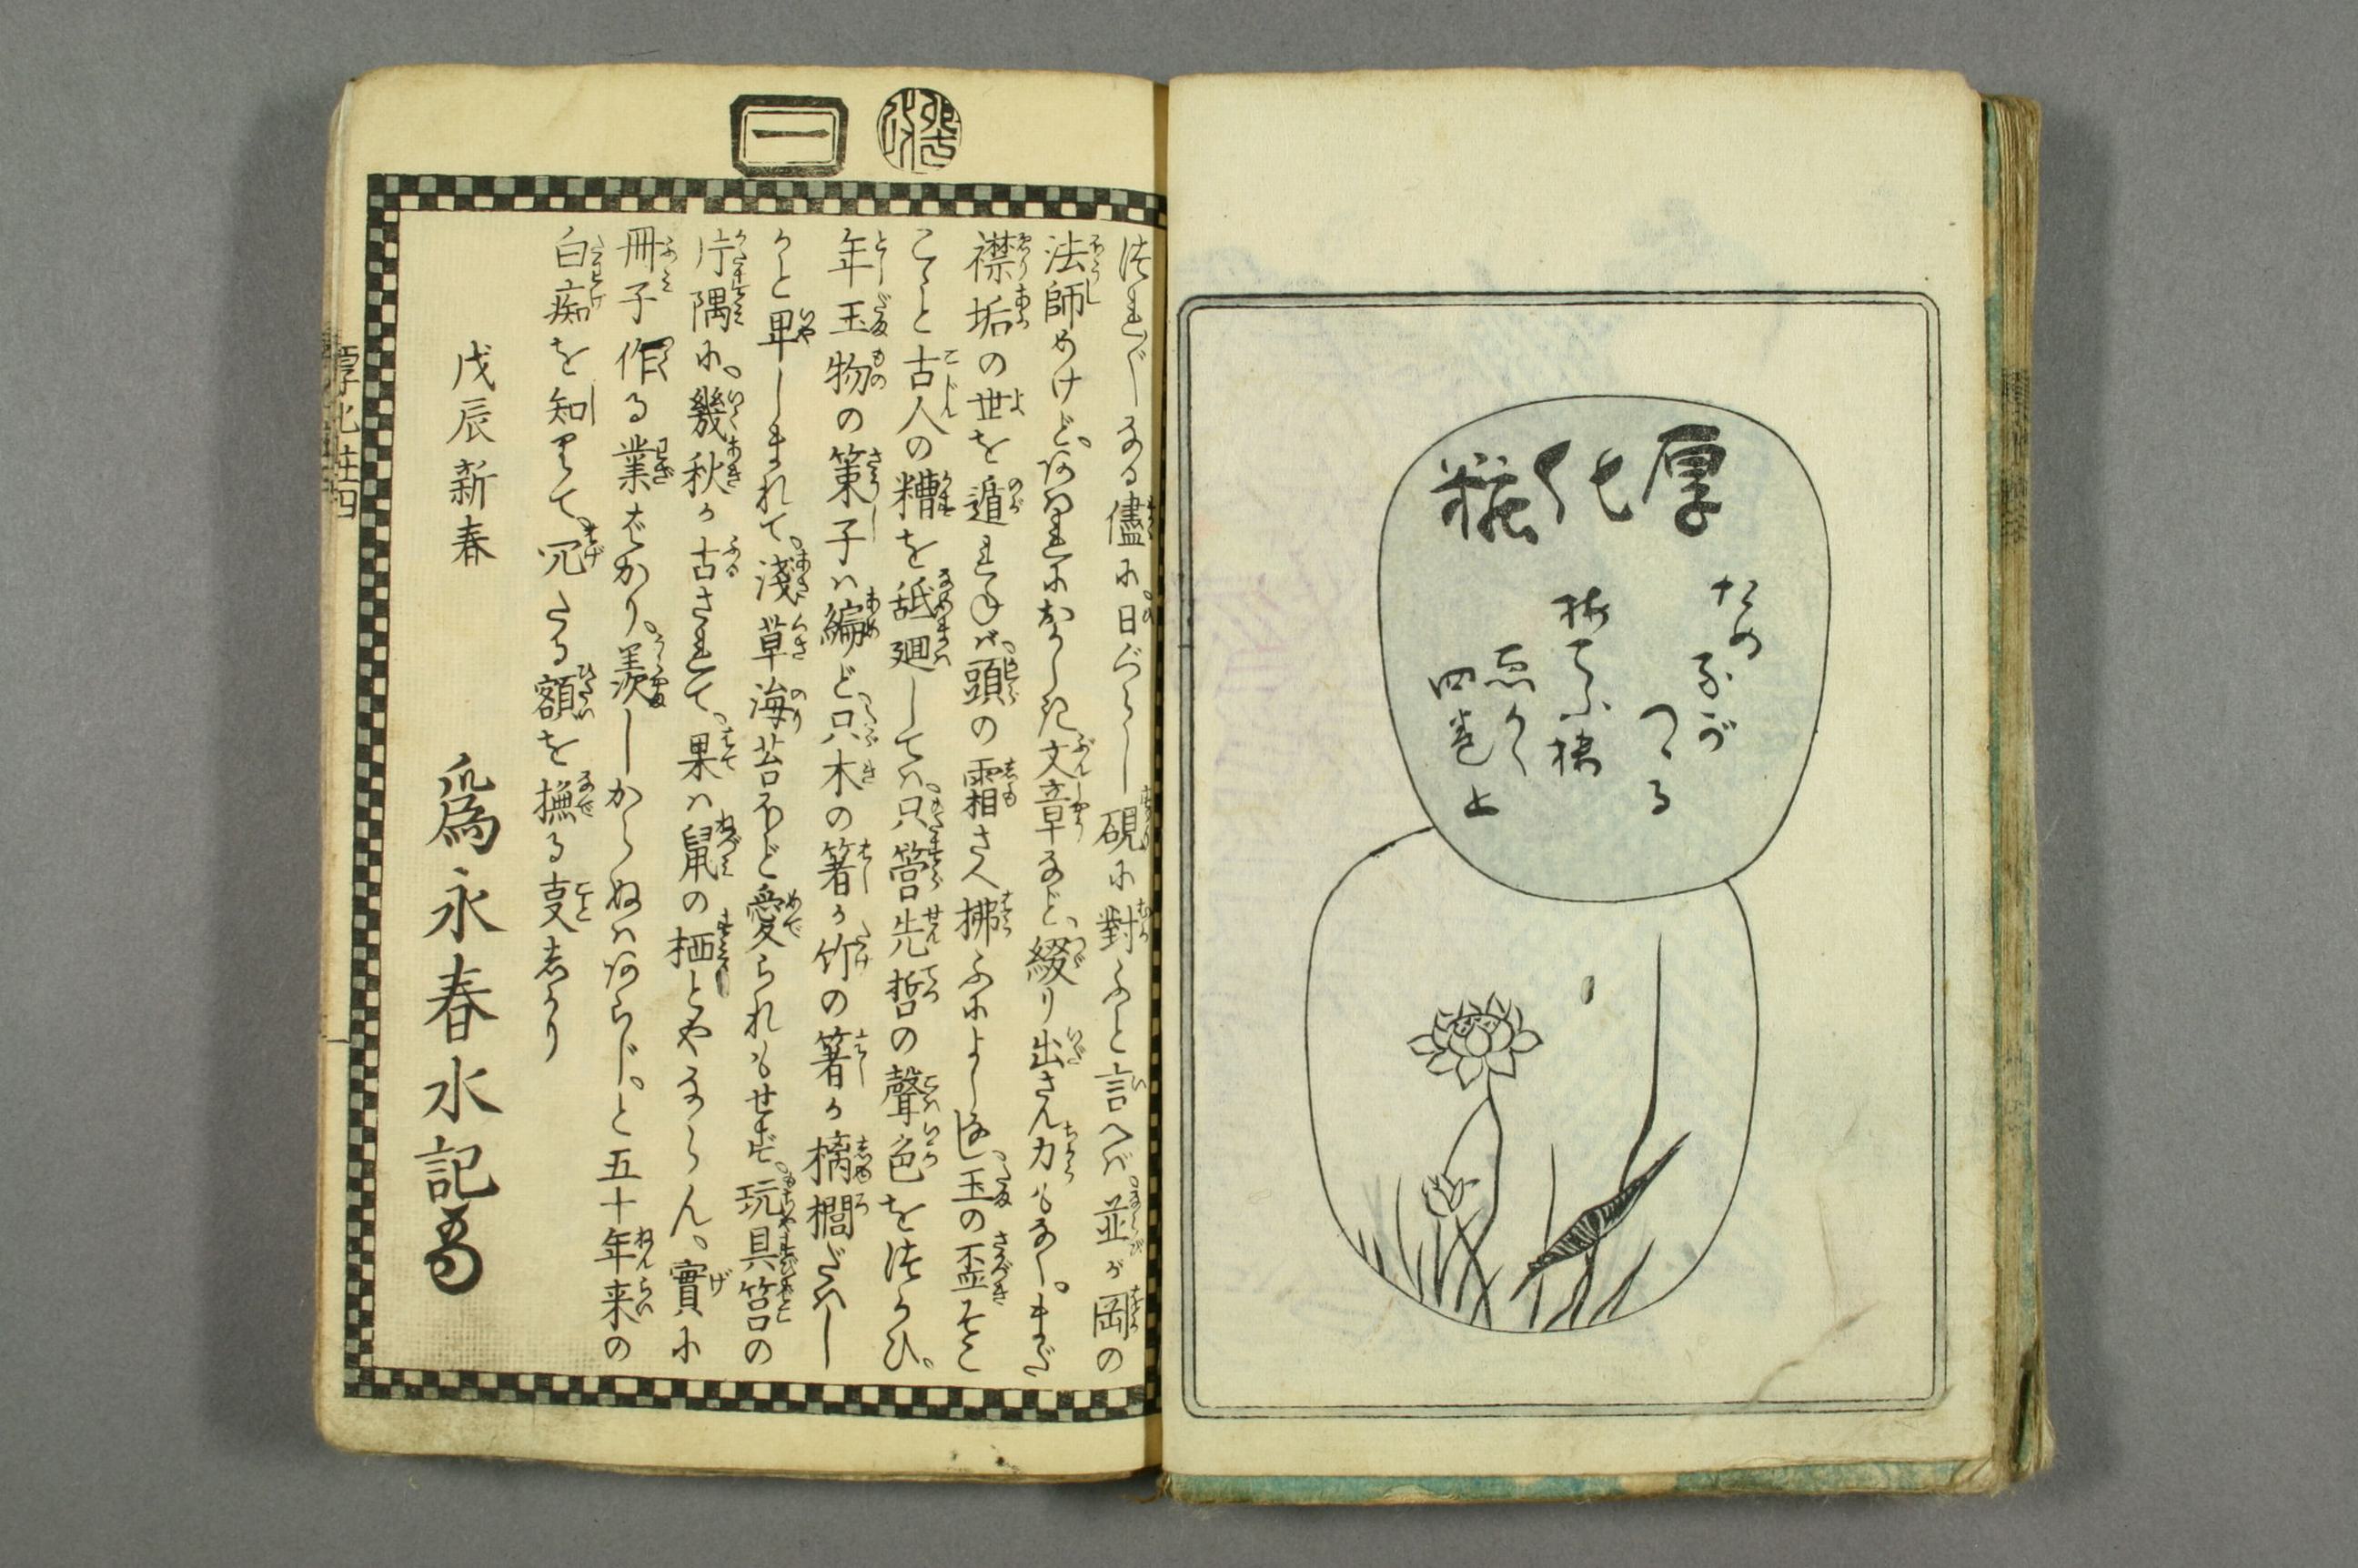 厚化粧
ため永が
つゞる
梅てふ楼
ゑがく
四巻上
一
徒然なる儘に日ぐらし硯に對ふと言へバ並が岡の
法師めけど、われにおかしき文章など、綴り出さん力もなし。まだ
襟垢の世を遁れねバ、頭の霜さへ拂ふによしなし、玉の盃そこ
こゝと古人の糟を舐廻してハ、只管先哲の聲色をつかひ。
年玉物の策子ハ編ど只木の箸か竹の箸か棕櫚ばゝし
かと卑しまれて、淺草海苔ほど愛られもせず、玩具筥の
片隅に、幾秋か古されて、果ハ鼠の栖とやならん。實に
冊子作る業ばかり、羨しからぬハあらじ、と五十年来の
白痴を知りて、兀たる額を撫る叓しかり
戊辰新春
爲永春水記